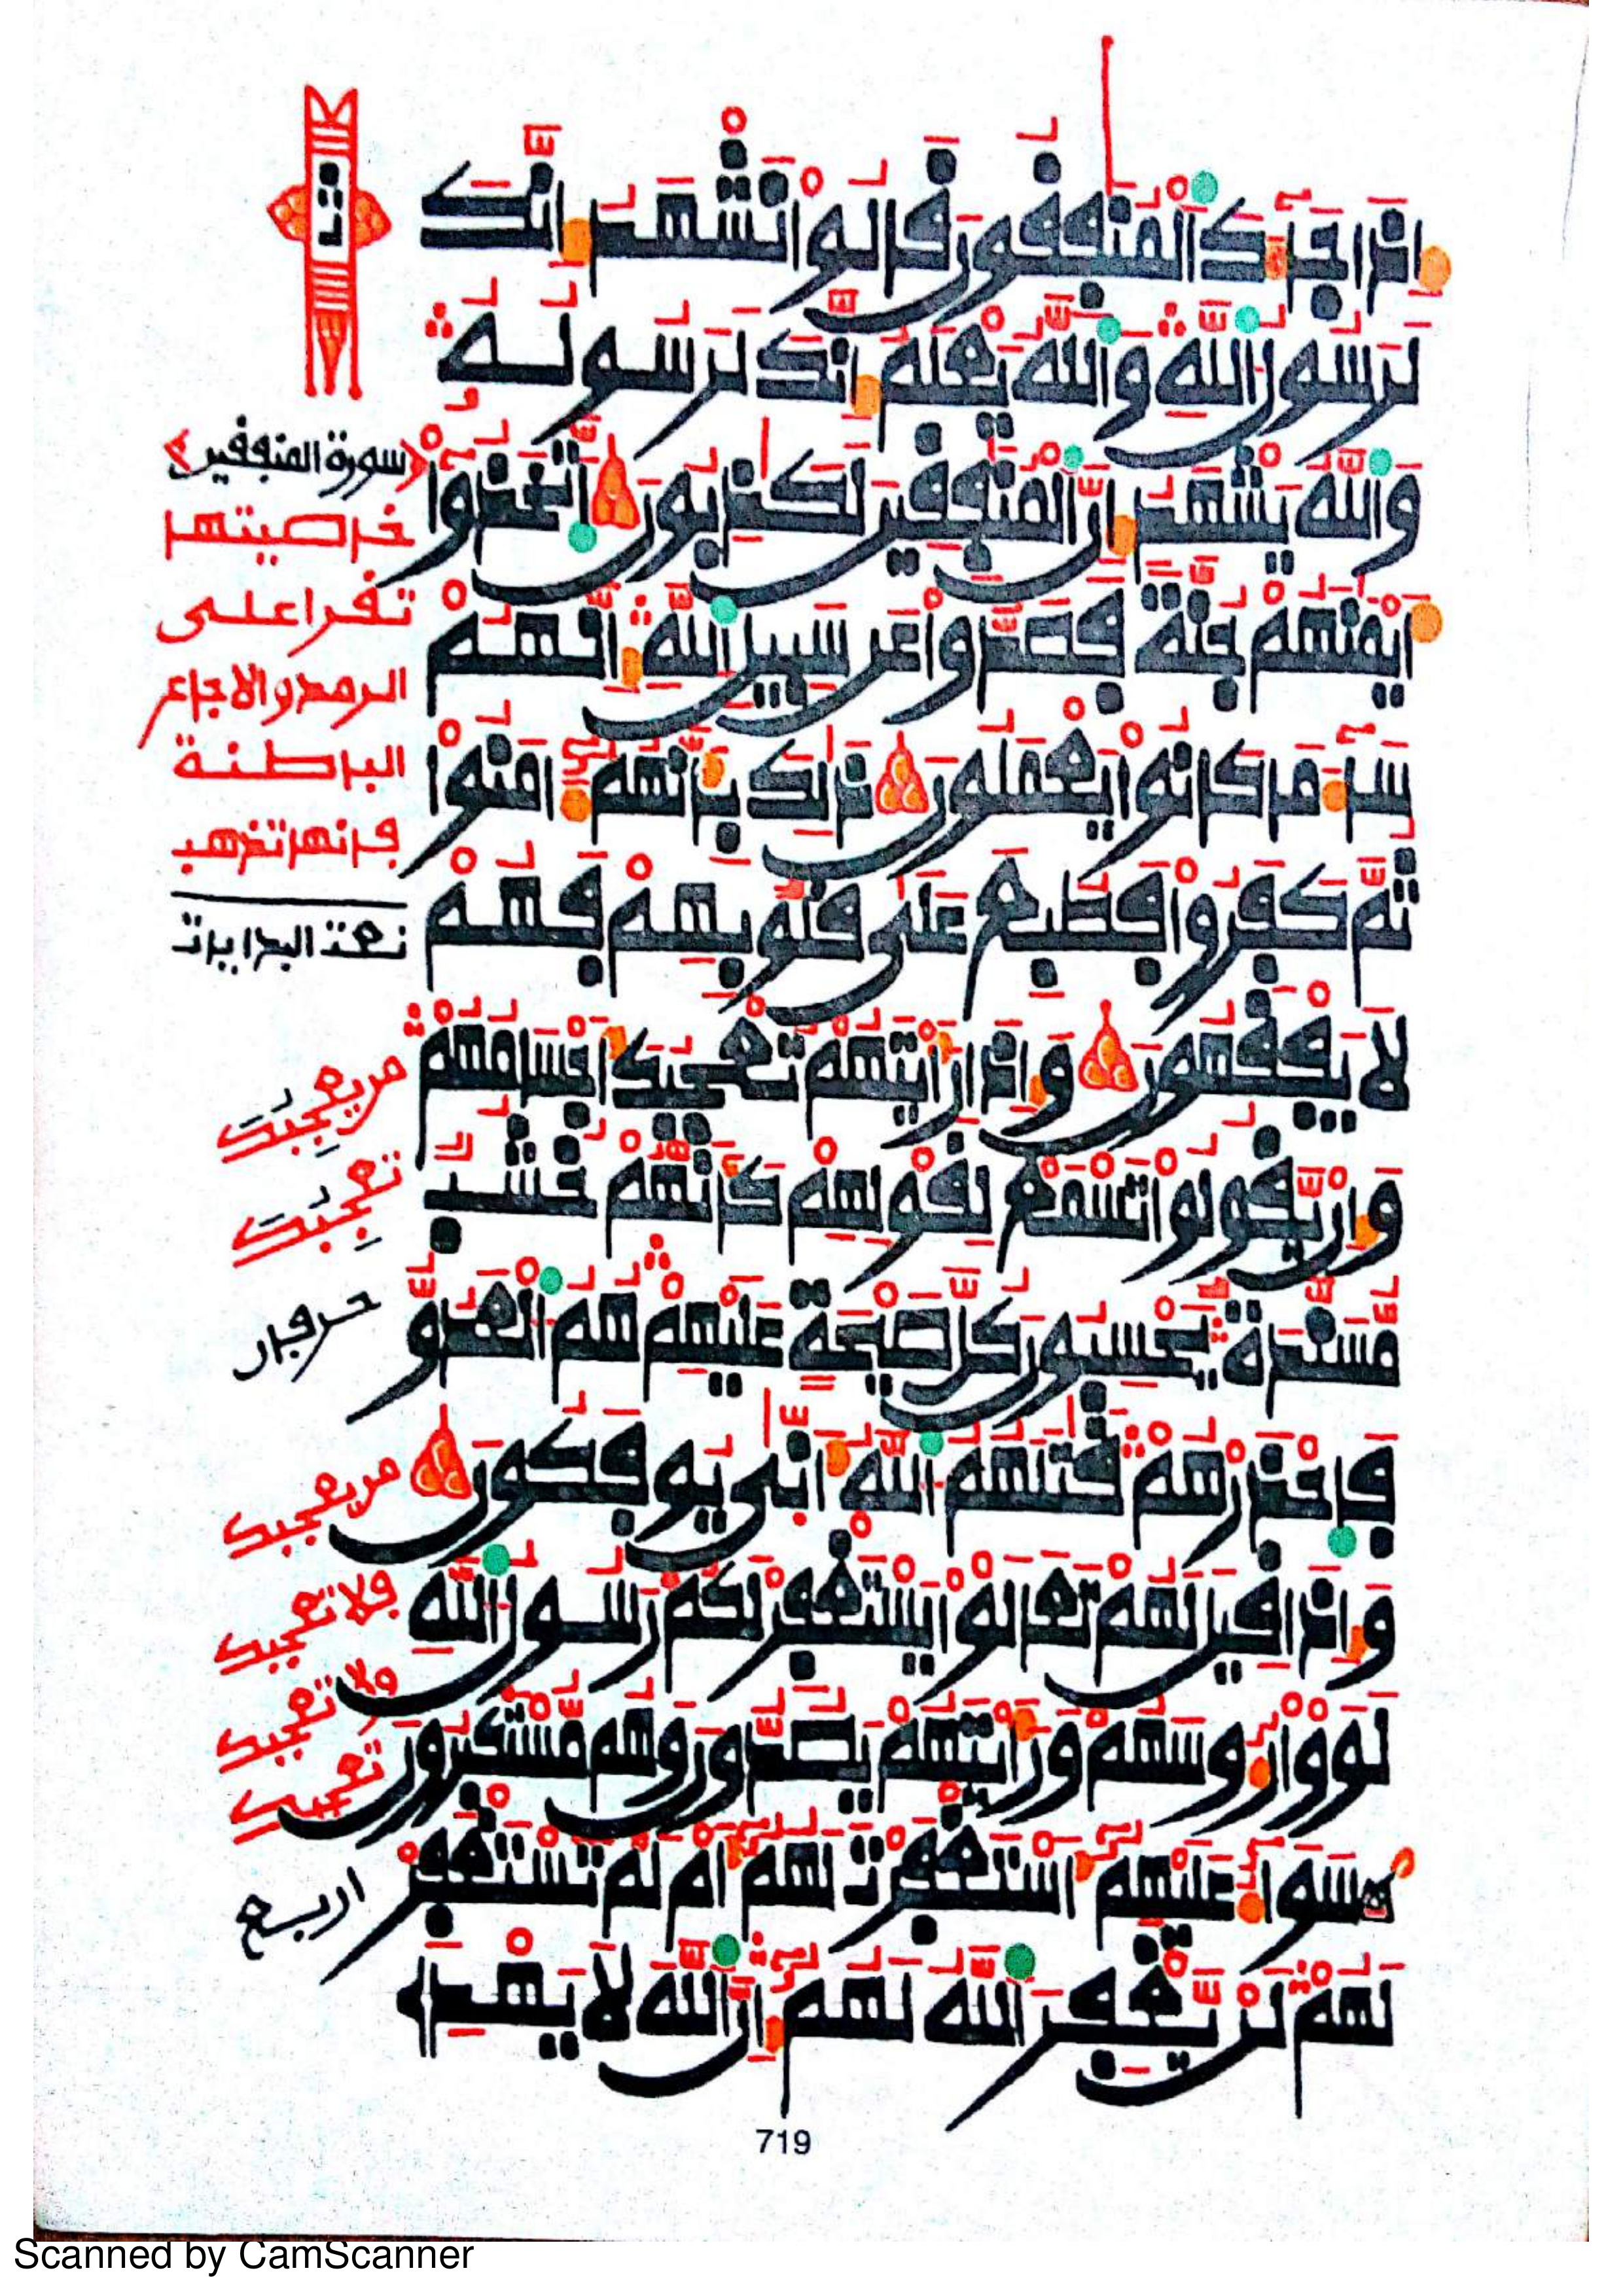 إِذَا جَآءَكَ ٱلْمُنَٰفِقُونَ قَالُواْ نَشْهَدُ إِنَّكَ
لَرَسُولُ ٱللَّهِ وَٱللَّهُ يَعْلَمُ إِنَّكَ لَرَسُولُهُۥ
وَٱللَّهُ يَشْهَدُ إِنَّ ٱلْمُنَٰفِقِينَ لَكَٰذِبُونَ ٱتَّخَذُوٓاْ
أَيْمَٰنَهُمْ جُنَّةً فَصَدُّواْ عَن سَبِيلِ ٱللَّهِ إِنَّهُمْ
سَآءَ مَا كَانُواْ يَعْمَلُونَ ذَٰلِكَ بِأَنَّهُمْ ءَامَنُواْ
ثُمَّ كَفَرُواْ فَطُبِعَ عَلَىٰ قُلُوبِهِمْ فَهُمْ
لَا يَفْقَهُونَ وَإِذَا رَأَيْتَهُمْ تُعْجِبُكَ أَجْسَامُهُمْ
وَإِن يَقُولُواْ تَسْمَعْ لِقَوْلِهِمْ كَأَنَّهُمْ خُشُبٌ
مُّسَنَّدَةٌ يَحْسِبُونَ كُلَّ صَيْحَةٍ عَلَيْهِمْ هُمُ ٱلْعَدُوُّ
فَٱحْذَرْهُمْ قَٰتَلَهُمُ ٱللَّهُ أَنَّىٰ يُوفَكُونَ
وَإِذَا قِيلَ لَهُمْ تَعَالَوْاْ يَسْتَغْفِرْ لَكُمْ رَسُولُ ٱللَّهِ
لَوَوْاْ رُءُوسَهُمْ وَرَأَيْتَهُمْ يَصُدُّونَ وَهُم مُّسْتَكْبِرُونَ
سَوَآءٌ عَلَيْهِمُۥٓ أَسْتَغْفَرْتَ لَهُمُۥٓ أَمْ لَمْ تَسْتَغْفِرْ
لَهُمْ لَن يَغْفِرَ ٱللَّهُ لَهُمُۥٓ إِنَّ ٱللَّهَ لَا يَهْدِى
سورة المنفقين
خاصيتها
تقرا على
الرمد والاجاع
الباطنة
فإنها تذهب
نعت البدايات
من يعجبك
تعجبك
حرفان
من يعجبك
فلا تعجبك
ولا تعجبك
تعجبك
اربع
719
Scanned by CamScanner